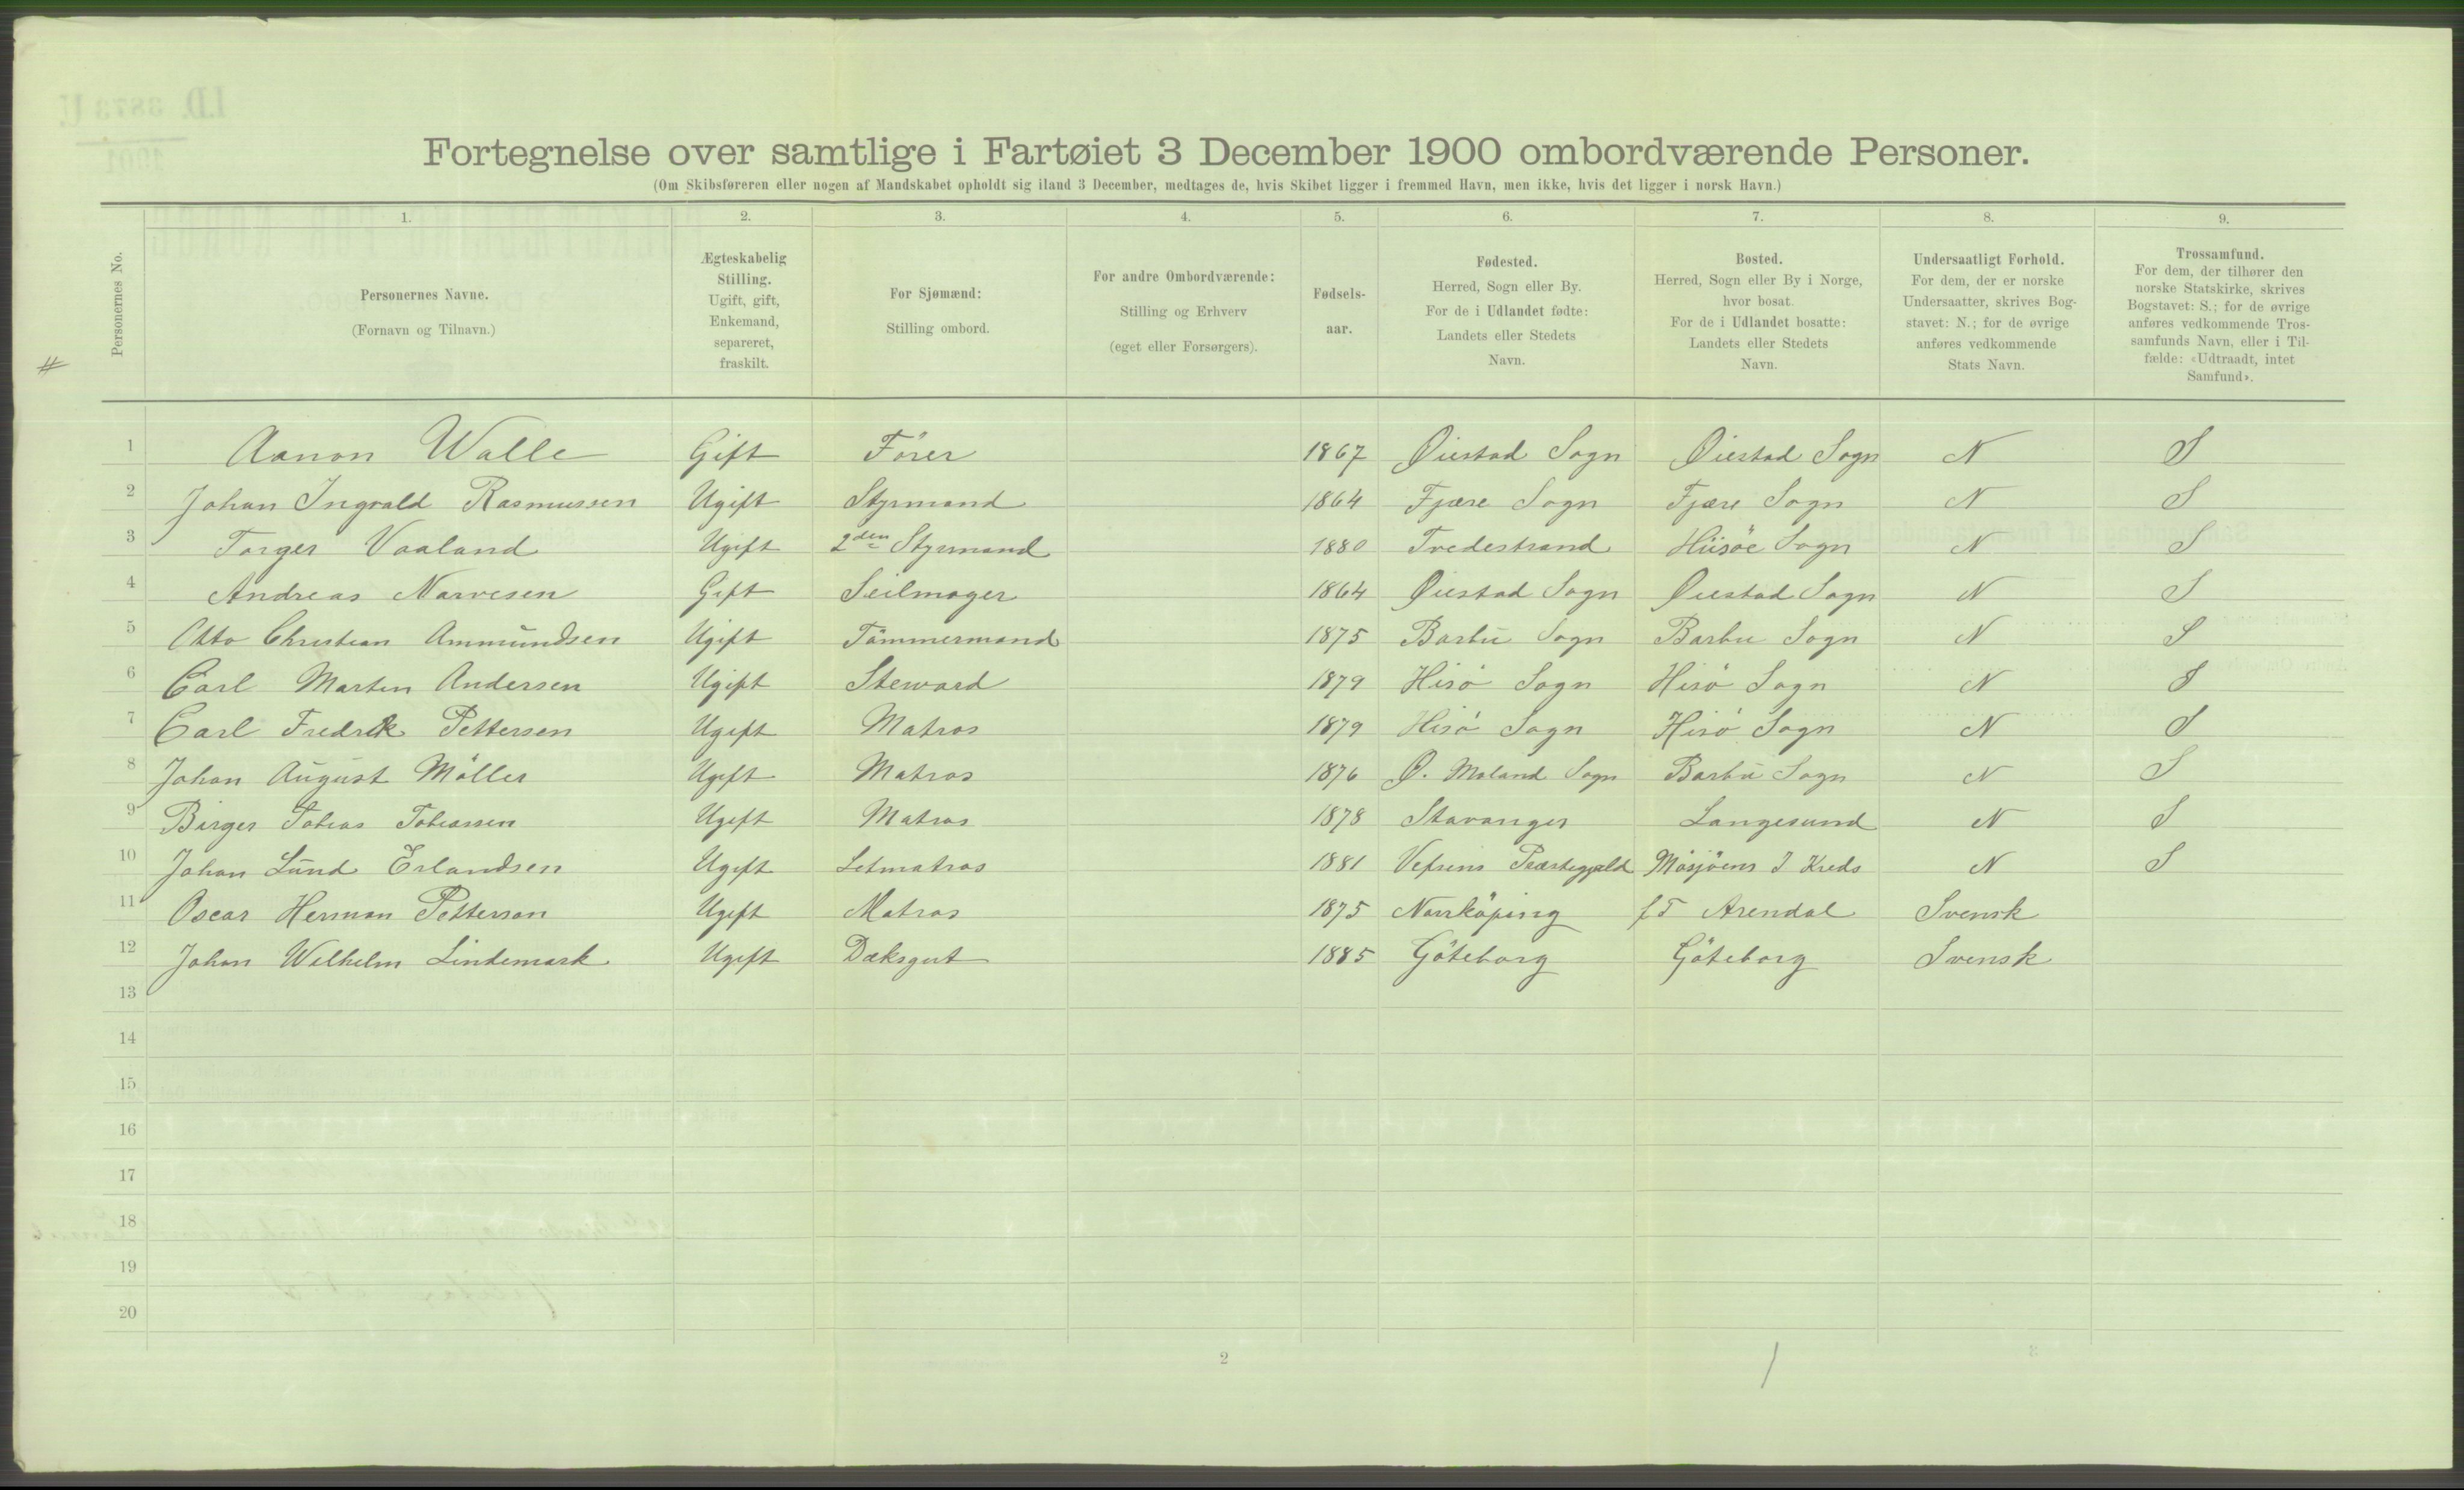 Fortegnelse over samtlige i Fartøiet 3 December 1900 ombordværende Personer.
(Om Skibsføreren eller nogen af Mandskabet opholdt sig iland 3 December, medtages de, hvis Skibet ligger i fremmed Havn, men ikke, hvis det ligger i norsk Havn.)
1. 2. 3. 4. 5. 6. 7. 8. 9.
Personernes No.
Personernes Navne.
(Fornavn og Tilnavn.)
Ægteskabelig
Stilling.
Ugift, gift,
Enkemand,
separeret,
fraskilt.
For Sjømænd:
Stilling ombord.
For andre Ombordværende:
Stilling og Erhverv
(eget eller Forsørgers).
Fødsels-
aar.
Fødested.
Herred, Sogn eller By.
For de i Udlandet fødte:
Landets eller Stedets
Navn.
Bosted.
Herred, Sogn eller By i Norge,
hvor bosat.
For de i Udlandet bosatte:
Landets eller Stedets
Navn.
Undersaatligt Forhold.
For dem, der er norske
Undersaatter, skrives Bog-
stavet: N.; for de øvrige
anføres vedkommende
Stats Navn.
Trossamfund.
For dem, der tilhører den
norske Statskirke, skrives
Bogstavet: S.; for de øvrige
anføres vedkommende Tros-
samfunds Navn, eller i Til-
fælde: «Udtraadt, intet
Samfund».
#
1 Aanon Walle Gift Förer 1867 Øiestad Sogn Øiestad Sogn N S
2 Johan Ingvald Rasmussen Ugift Styrmand 1864 Fjære Sogn Fjære Sogn N S
3 Torger Vaaland Ugift 2den Styrmand 1880 Tvedestrand Hiisöe Sogn N S
4 Andreas Narvesen Gift Seilmager 1864 Øiestad Sogn Øiestad Sogn N S
5 Otto Christian Ammundsen Ugift Tömmermand 1875 Barbu Sogn Barbu Sogn N S
6 Carl Martin Andersen Ugift Steward 1879 Hisö Sogn Hisö Sogn N S
7 Carl Fredrik Pettersen Ugift Matros 1879 Hisö Sogn Hisö Sogn N S
8 Johan August Möller Ugift Matros 1876 Ø. Moland Sogn Barbu Sogn N S
9 Birger Tobias Tobiassen Ugift Matros 1878 Stavanger Langesund N S
10 Johan Lund Erlandsen Ugift Letmatros 1881 Vefsens Præstegjæld Mosjöens I Kreds N S
11 Oscar Herman Petterson Ugift Matros 1875 Norrköping f T Arendal Svensk
12 Johan Wilhelm Lindemark Ugift Dæksgut 1885 Göteborg Göteborg Svensk
13
14
15
16
17
18
19
20
2